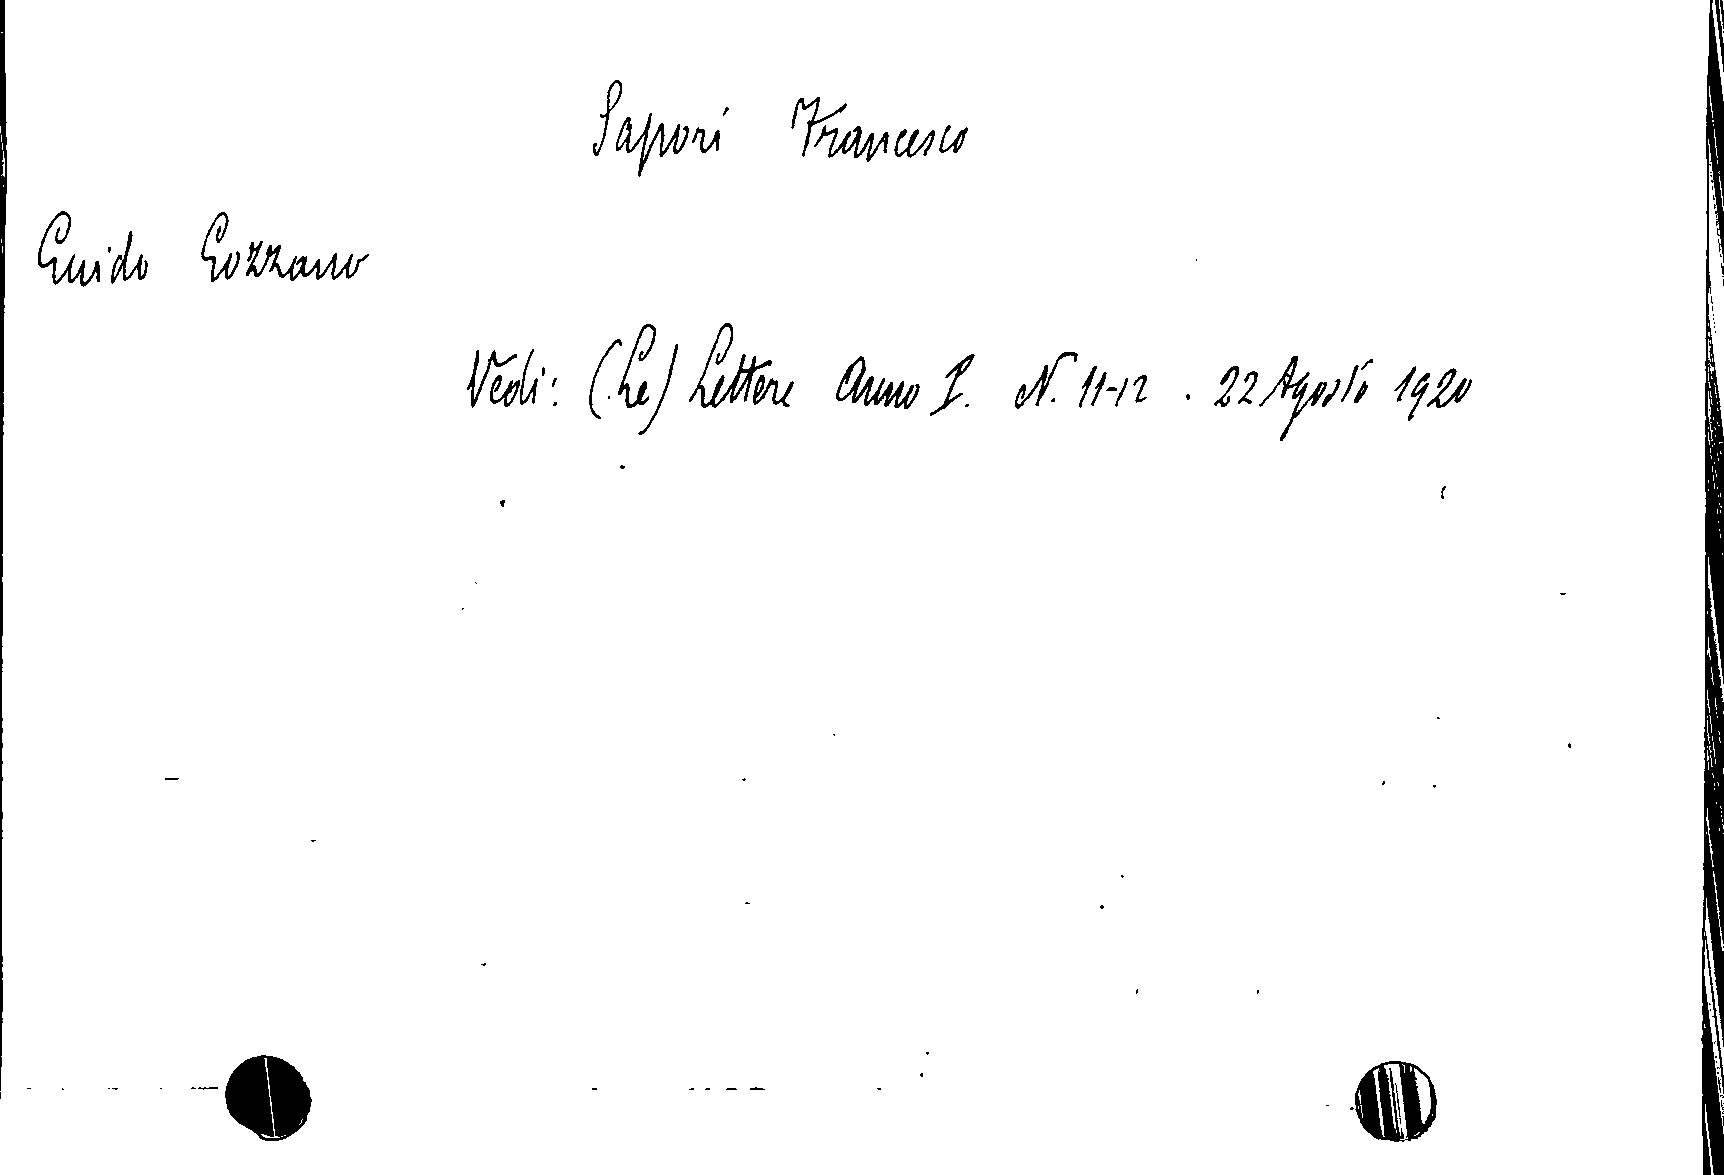 Sapori Francesco
Guido Gozzano
Vedi: (Le) Lettere Anno I. N. 11-12 . 22 Agosto 1920